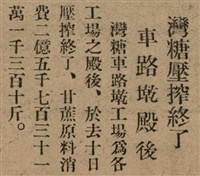 灣糖壓搾終了
車路墘殿後
灣糖車路墘工場爲各
工場之殿後、於去十日
壓搾終了、甘蔗原料消
費二億五千七百三十一
萬一千三百十斤。